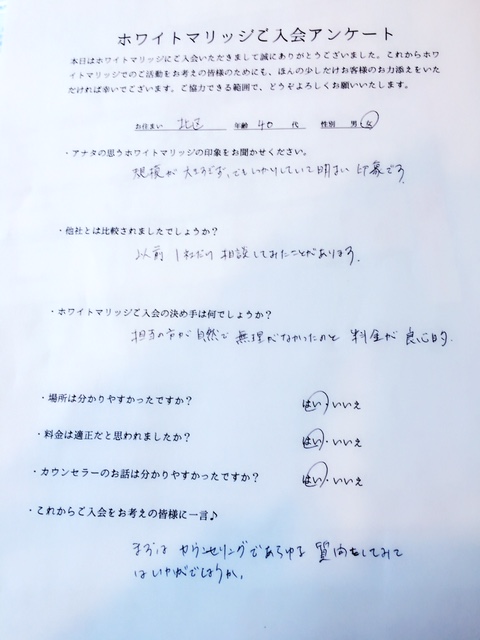 ホワイトマリッジご入会アンケート
本日はホワイトマリッジにご入会いただきまして誠にありがとうございました。これからホワ
イトマリッジでのご活動をお考えの皆様のためにも、ほんの少しだけお客様のお力添えをいた
だければ幸いでございます。ご協力できる範囲で、どうぞよろしくお願いいたします。
お住まい 北区 年齢 40 代 性別 男 女
・アナタの思うホワイトマリッジの印象をお聞かせください。
規模が大きすぎず、でもしっかりしていて明るい印象です。
・他社とは比較されましたでしょうか？
以前1社だけ相談してみたことがあります。
・ホワイトマリッジご入会の決め手は何でしょうか？
担当の方が自然で無理がなかったのと料金が良心的。
・場所は分かりやすかったですか？ はい・いいえ
・料金は適正だと思われましたか？ はい・いいえ
・カウンセラーのお話は分かりやすかったですか？ はい・いいえ
・これからご入会をお考えの皆様に一言♪
まずはカウンセリングであらゆる質問をしてみて
はいかがでしょうか。